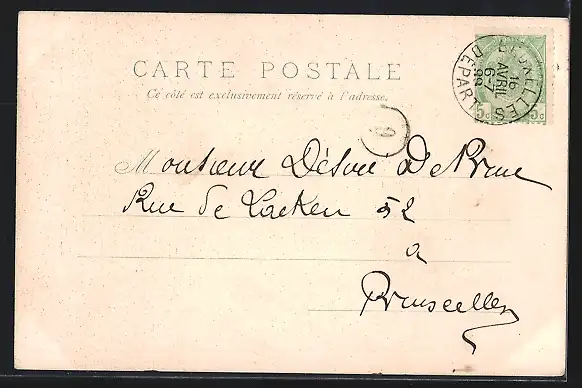 CARTE POSTALE
Ce côté est exclusivement réservé à l'adresse.
BRUXELLES
16
AVRIL
6-7
99
DEPART
5c 5c
9
Monsieur Désiré De Prine
Rue de Laeken 52
a
Bruxelles